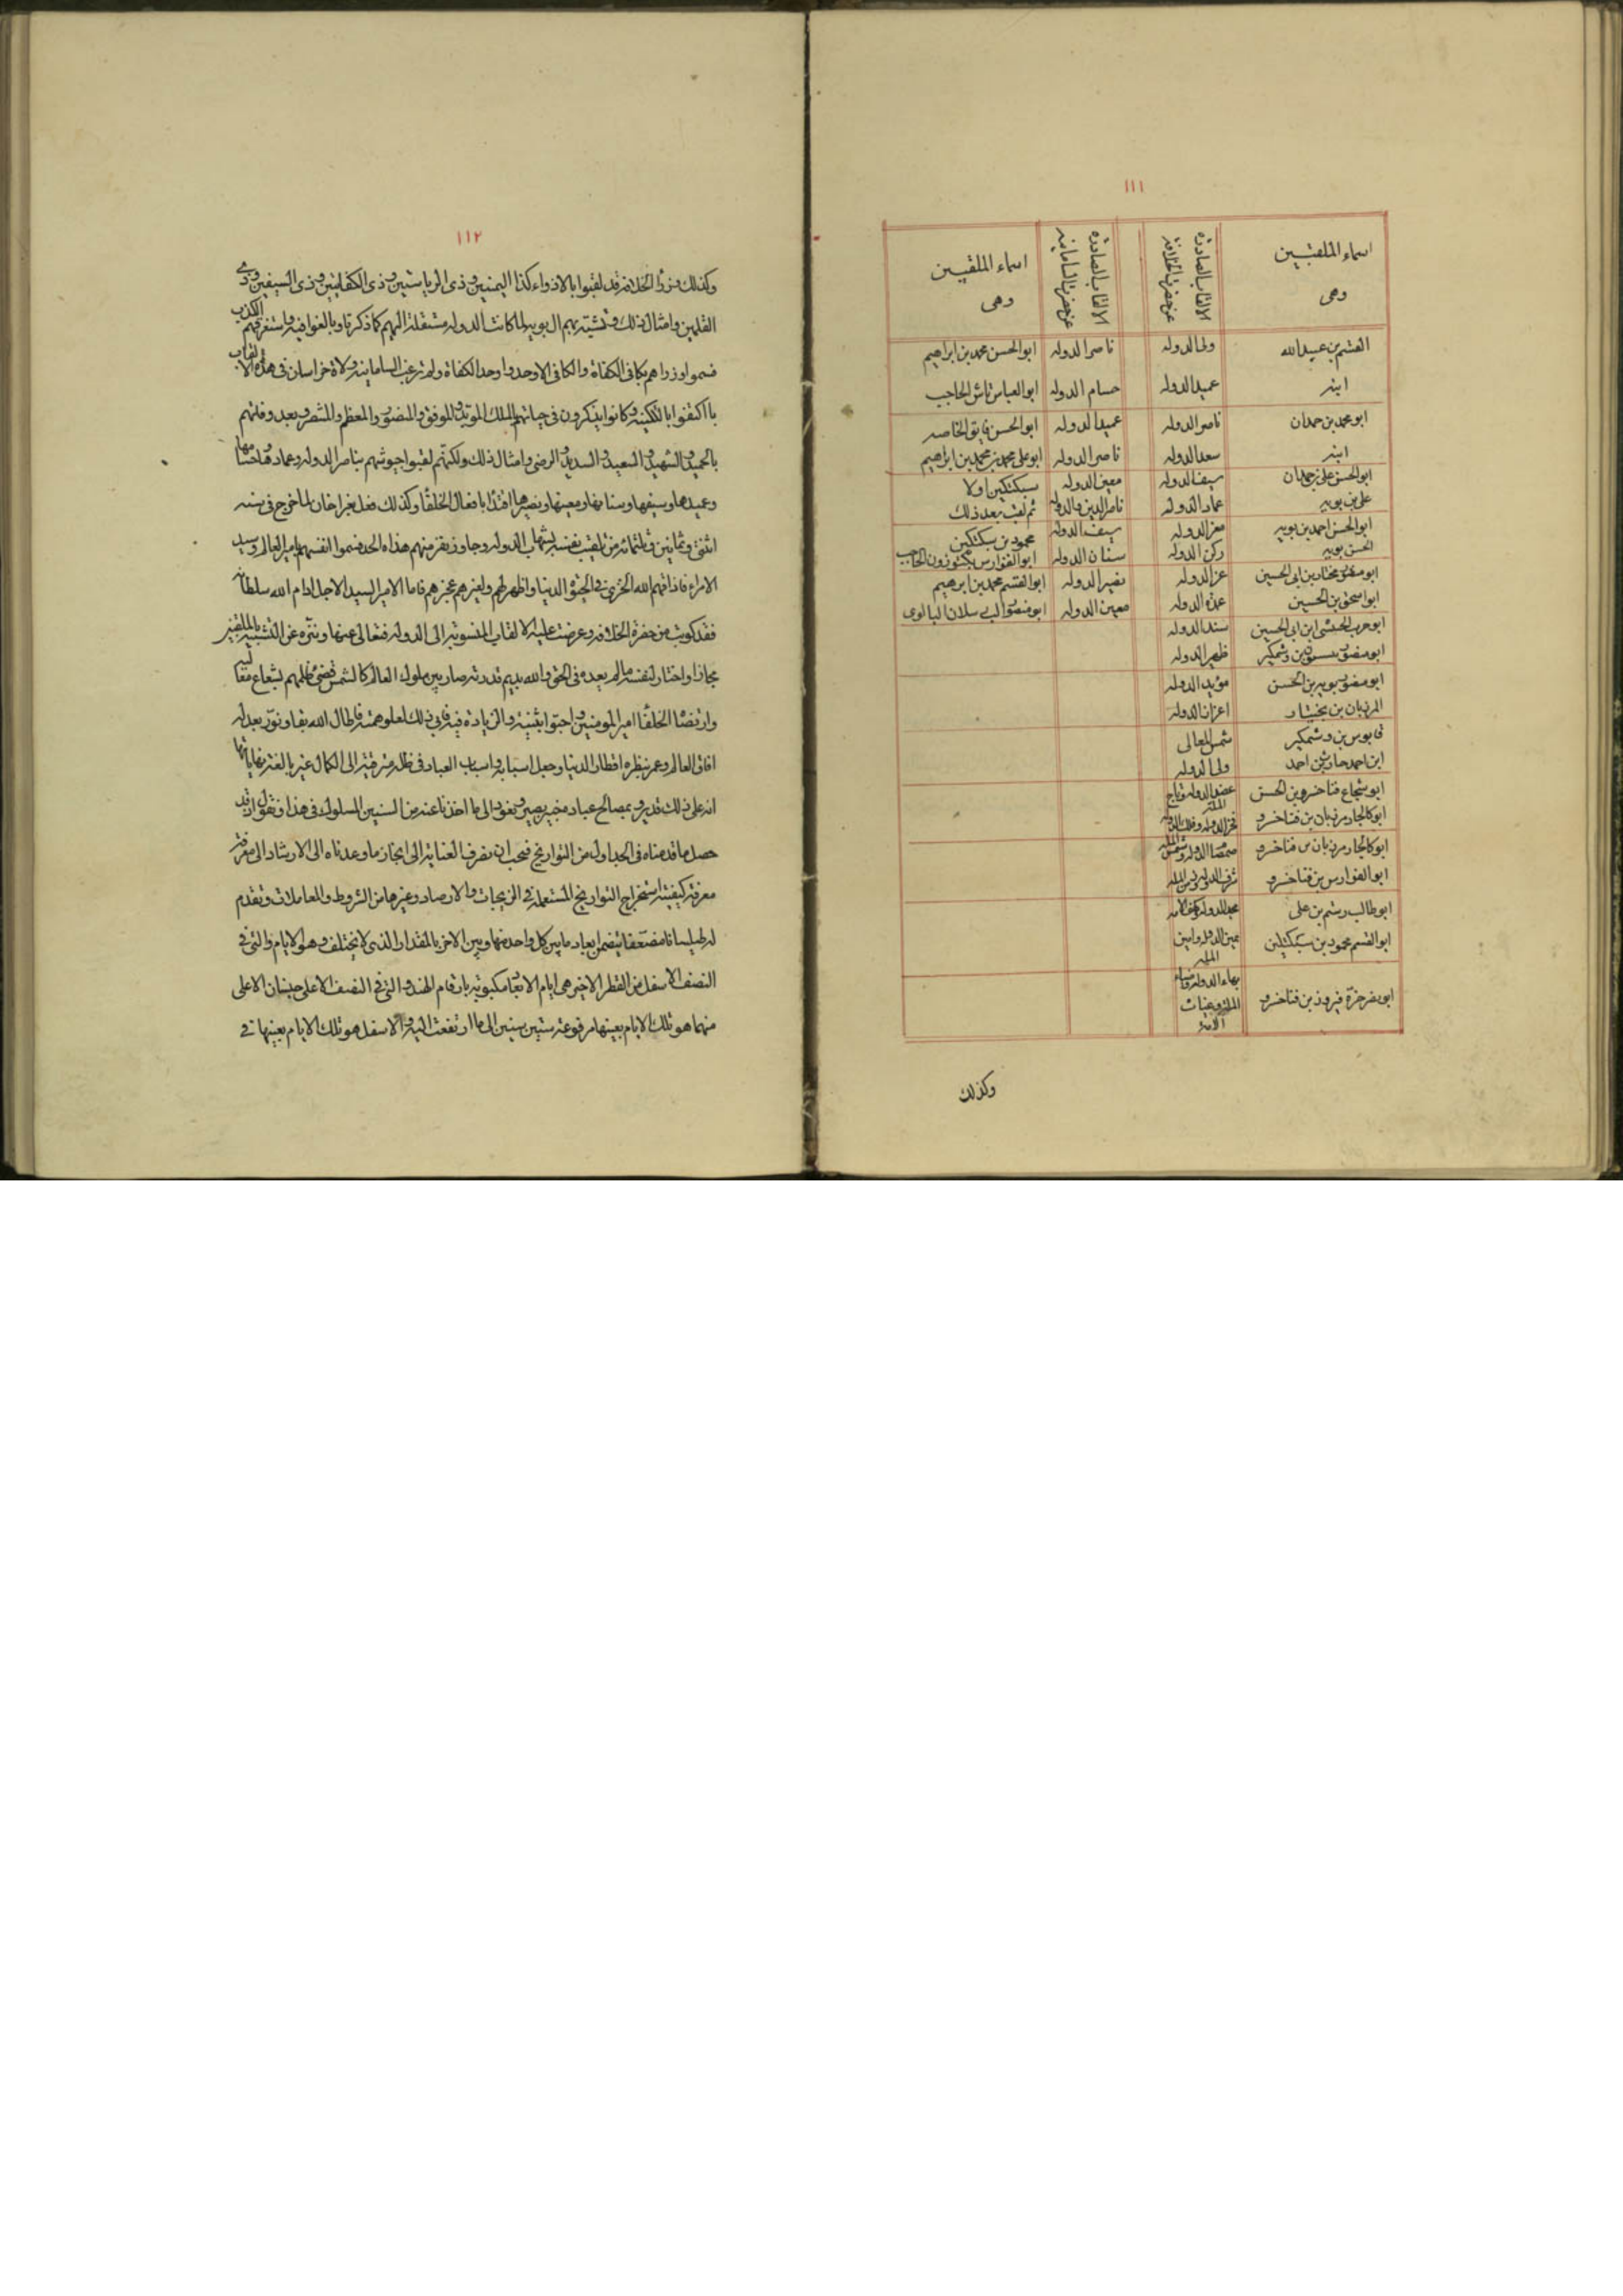 ١١١
اسماء الملقبين وهى
الالقاب الصادرة عن حضرة الخلافة
الالقاب الصادرة عن حضرة السامانية
اسماء الملقبين وهى
القسم بن عبيد الله ولى الدوله ناصر الدوله ابو الحسن محمد بن ابراهيم
ابنه عميد الدوله حسام الدوله ابو العباس تاش الحاجب
ابو محمد بن حمدان ناصر الدوله عميد الدوله ابو الحسن فايق الخاصه
ابنه سعد الدوله ناصر الدوله ابو على محمد بن محمد بن ابراهيم
ابو الحسن على بن حمدان سيف الدوله معين الدوله سبكتكين اولا
على بن بويه عماد الدوله ناصر الدين والدوله ثم لقب بعد ذلك
ابو الحسن احمد بن بويه معز الدوله سيف الدوله محمود بن سبكتكين
الحسن بويه ركن الدوله سنان الدوله ابو الفوارس بكتوزون الحاجب
ابو منصور بختيار بن ابى الحسين عز الدوله نصير الدوله ابو القسم محمد بن ابرهيم
ابو اسحق بن الحسين عمدة الدوله معين الدوله ابو منصور البالوى
ابو حرب الحبشى ابن ابى الحسين سند الدوله
ابو منصور بن وشمكير ظهير الدوله
ابو منصور بويه بن الحسن مؤيد الدوله
المرزبان بن بختيار اعزاز الدوله
قابوس بن وشمكير شمس المعالى
ابن احمد حارث بن احمد ولى الدوله
ابو شجاع فناخسرو بن الحسن عضد الدوله وتاج الملة
ابو كالجار مرزبان بن فناخسرو فخر الدوله وفلك الامه
ابو كالجار مرزبان بن فناخسرو صمصام الدوله وشمس المله
ابو الفوارس بن فناخسرو شرف الدوله وزين المله
ابو طالب رستم بن على مجد الدوله وكهف الامه
ابو القسم محمود بن سبكتكين يمين الدوله وامين المله
ابو نصر خرة فيروز بن فناخسرو بهاء الدوله وضياء المله وغياث الامه
وكذلك
١١٢
وكذلك وزراء الخلافة قد لقبوا بالاذواء كذا اليمينين وذى الرياستين وذى الكفايتين وذى السيفين وذى
القلمين وامثال ذلك وتشبه بهم ال بويه لما كانت الدوله منتقلة اليهم كما ذكرنا وبالغوا فيه واستغرقهم الكذب
فسموا وزراهم بكافى الكفاة والكافى الاوحد واوحد الكفاة ولم ترغب السامانية ولاة خراسان فى هذه الالقاب
با اكتفوا بالتكنية وكانوا يذكرون فى حياتهم بالملك المؤيد والموفق والمنصور والمعظم والمنتصر وبعد وفاتهم
بالحميد والشهيد والسعيد والسديد والرضى وامثال ذلك ولكنهم لقبوا جيوشهم بناصر الدوله وعمادها وحسامها
وعميدها وسيفها وسنانها ومعينها ونصيرها اقتداء بافعال الخلفاء وكذلك فعل بغراخان لما خرج فى سنه
اثنتى وثمانين وثلثمائة من تلقيب نفسه بشهاب الدوله وجاوز نفر منهم هذا الحد فسموا انفسهم بامير العالم وسيد
الامراء فاذاقهم الله الخزى فى الحيوة الدنيا واظهر لهم ولغيرهم عجزهم فاما الامير السيد الاجل ادام الله سلطانه
فقد كوتب من حضرة الخلافة وعرضت عليه الالقاب المنسوبة الى الدوله فتعالى عنها وتنزه عن التشبيه بالملقبين
مجازا واختار لنفسه مالم يعده فى الحق والله يديم قدرته صار بين ملوك العالم كالشمس تضئ ظلمهم بشعاع معاليه
وارتضاه الخلفاء امير المومنين واحبوا تثنيته والزيادة فيه فابى ذلك لعلو همته فاطال الله بقاه ونور بعدله
افاق العالم وعمر بنظره اقطار الدنيا وجعل اسبابه واسباب العباد فى ظله مترقية الى الكمال غير بالغة نهاياتها
انه على ذلك قدير وبمصالح عباده خبير بصير ونعود الى ما اخذنا عنه من السنين المسلوك فى هذا ونقول اذ قد
حصل ما قدمناه فى الجداول من التواريخ فيجب ان نصرف العناية الى انجاز ما وعدناه الى الارشاد الى معرفة
معرفة كيفية استخراج التواريخ المستعمله فى الزيجات والارصاد وغيرها من الشروط والمعاملات ونقدم
له طيلسانا مضعفا يتضمن ابعاد ما بين كل واحد منها وبين الاخر بالمقدار الذى لا يختلف وهو الايام والتى فى
النصف الاسفل من القطر الاخير هى ايام الابعاد مكتوبة بارقام الهند والتى فى النصف الاعلى جنسان الاعلى
منهما هو تلك الايام بعينها مرفوعة ستين ستين الى ما ارتفعت اليه والاسفل هو تلك الايام بعينها فى